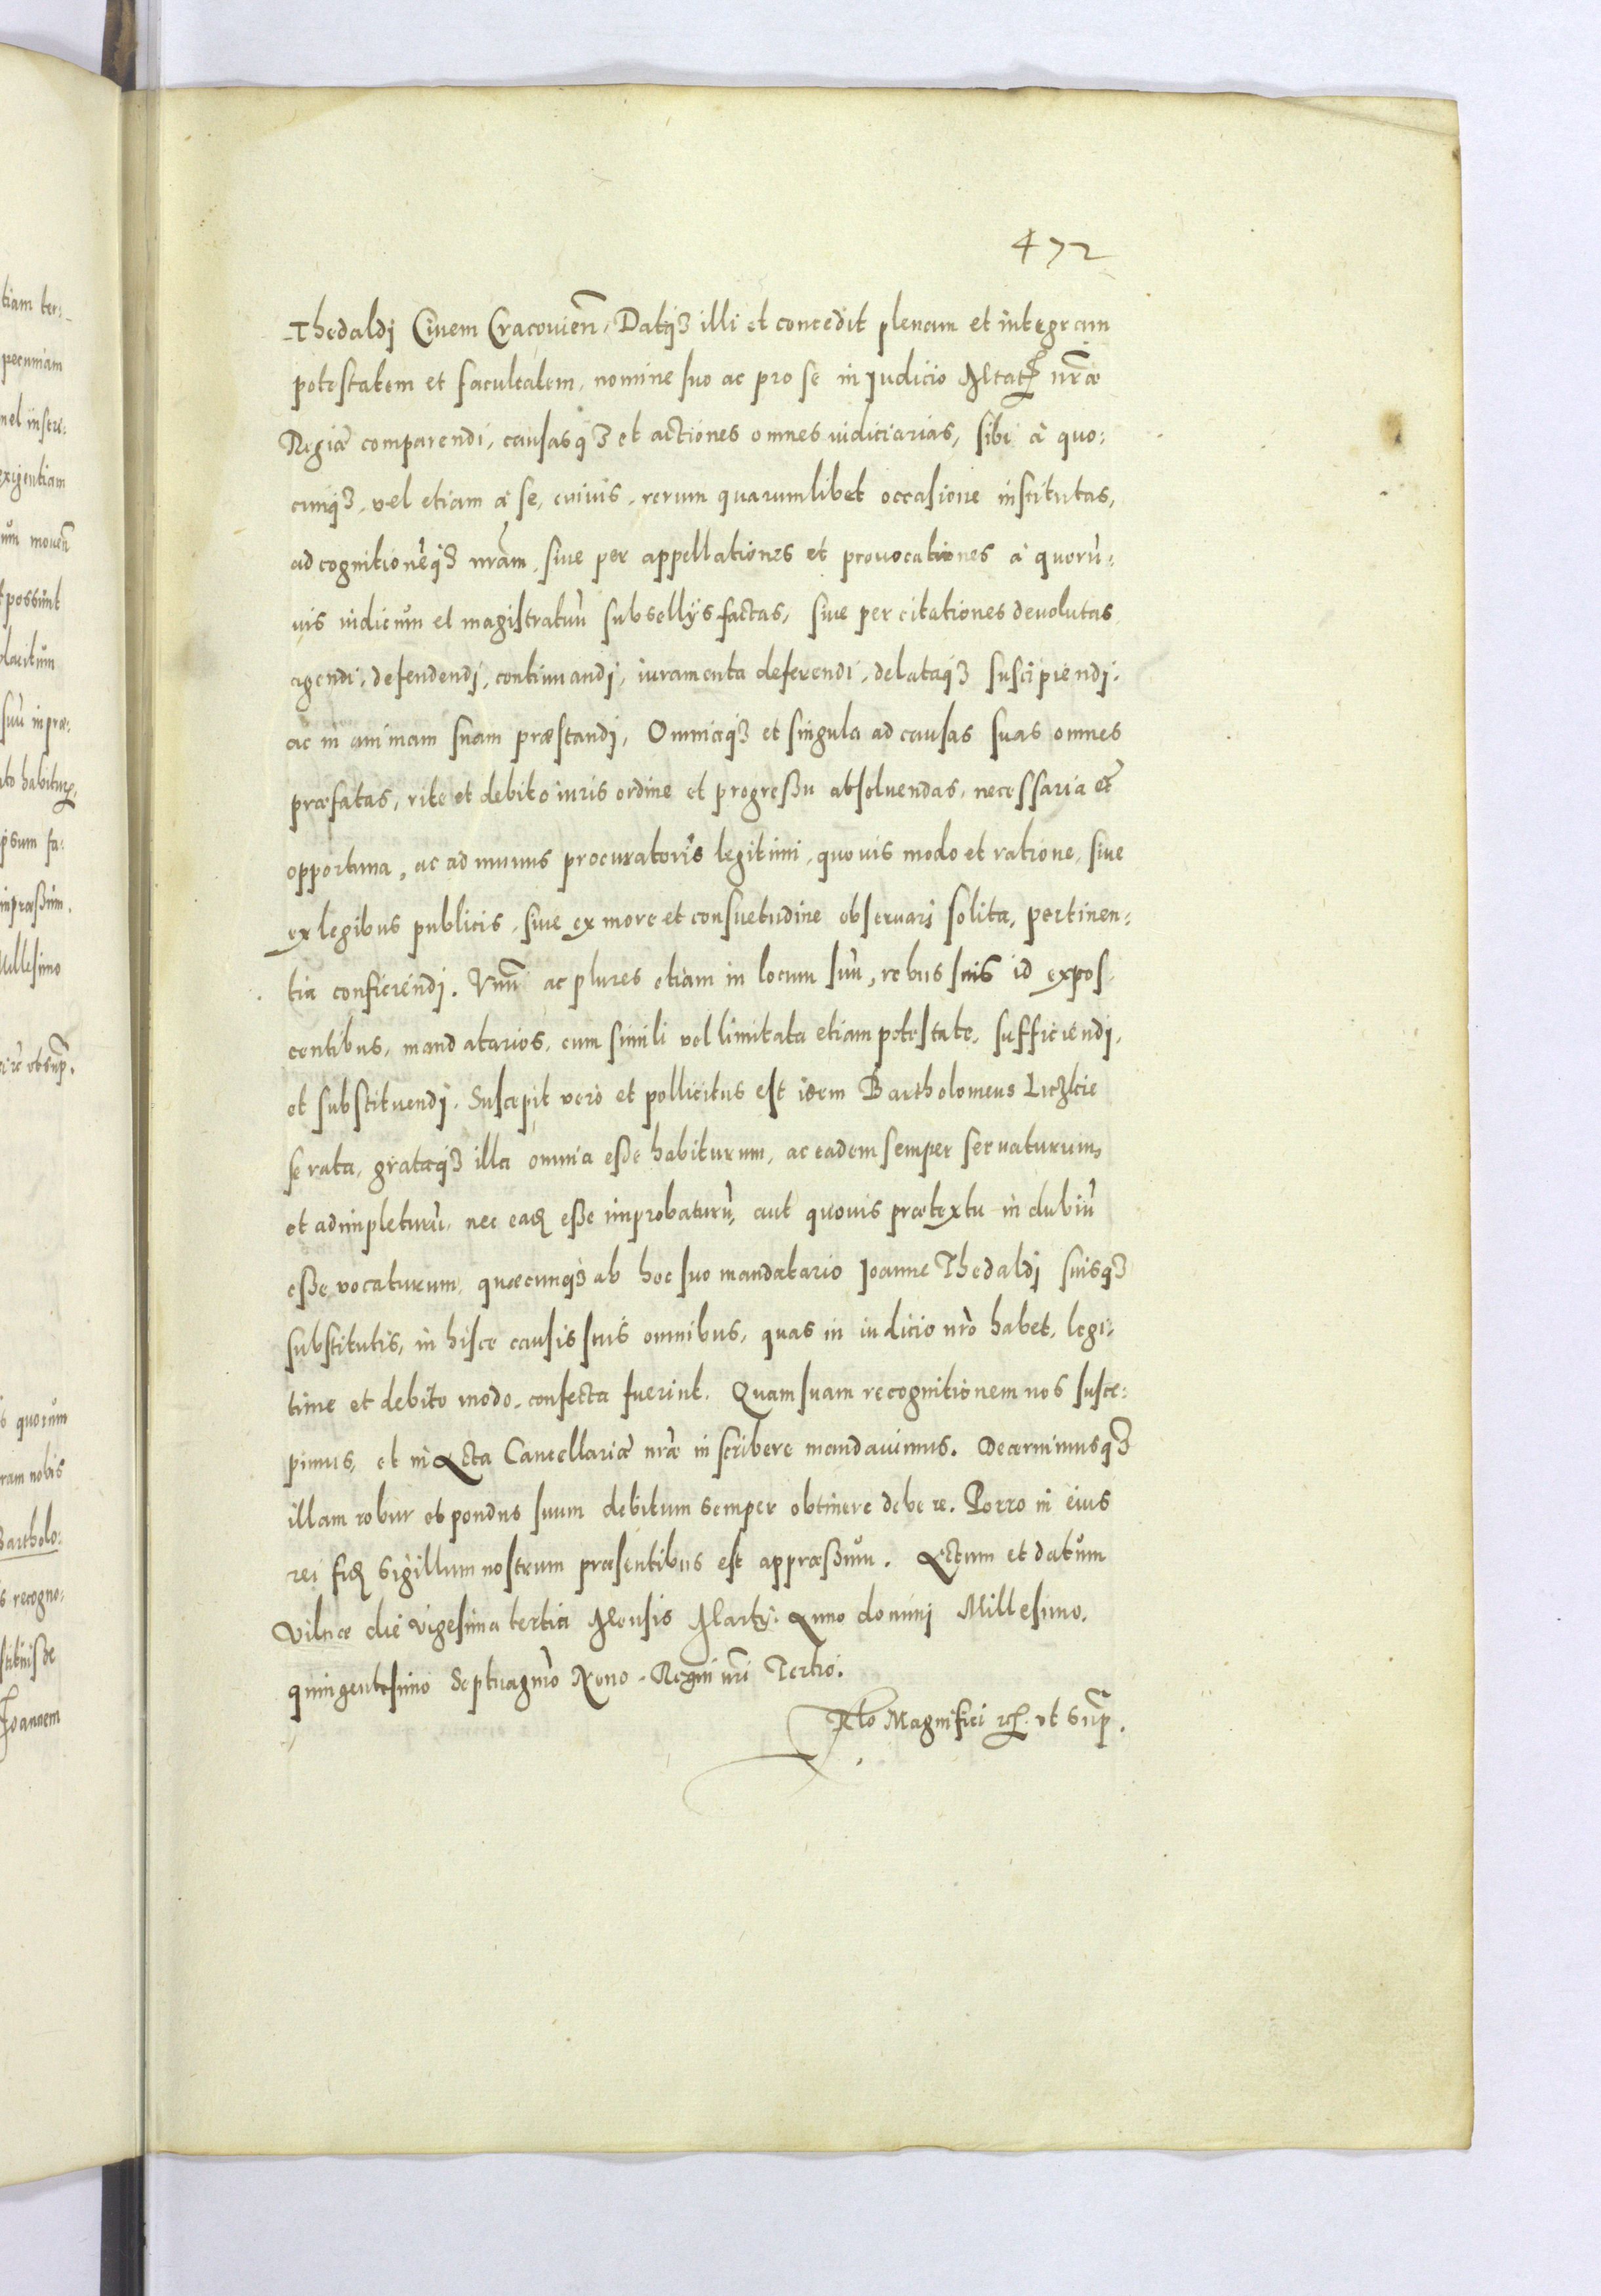 472
Thedaldj Ciuem Cracouien̄, Datq3 illi et concedit plenam et integram
potestatem et facultatem, nomine suo ac pro se in Judicio Mtatꝭ nr̄æ
Regiæ comparendi, causasq3 et actiones omnes iudiciarias, sibi á quo:
cunq3, vel etiam á se, cuiuis, rerum quarumlibet occasione institutas,
ad cognitionēq3 nrām, siue per appellationes et prouocationes á quorū:
uis iudicum et magistratuū subsellijs factas, siue per citationes deuolutas
agendi, defendendi, continuandj, iuramenta deferendi, delataq3 suscipiendj.
ac in animam suam præstandj, Omniaq3 et singula ad causas suas omnes
præfatas, rite et debito iuris ordine et progreßu absoluendas, necessaria et
opportuna, ac ad munus procuratoris legitimi, quouis modo et ratione, siue
ex legibus publicis, siue ex more et consuetudine obseruari solita, pertinen:
tia conficiendj. Vnū ac plures etiam in locum suū, rebus suis id expos:
centibus, mandatarios, cum simili vel limitata etiam potestate, sufficiendj,
et substituendj. Suscepit vero et pollicitus est idem Bartholomeus Liczkie
se rata, grataq3 illa omnia eße habiturum, ac eadem semper seruaturum,
et adimpleturū, nec eaꝶ eße improbaturū, aut quouis prætextu in dubiū
eße vocaturum, quæcunq3 ab hoc suo mandatario Joanne Thedaldj suisq3
substitutis, in hisce causis suis omnibus, quas in iudicio nrō habet, legi:
time et debito modo, confecta fuerint. Quam suam recognitionem nos susce:
pimus, et in Acta Cancellariæ nrǣ inscribere mandauimus. Decernimusq3
illam robur et pondus suum debitum semper obtinere debere. Porro in eius
rei fiꝶ Sigillum nostrum præsentibus est appræßum. Actum et datum
Vilnæ die vigesima tertia Mensis Martij. Anno dominj Millesimo.
quingentesimo Septuagmō Nono. Regni nrī Tertio.
Rlto Magnifici &c. vt sup̄.